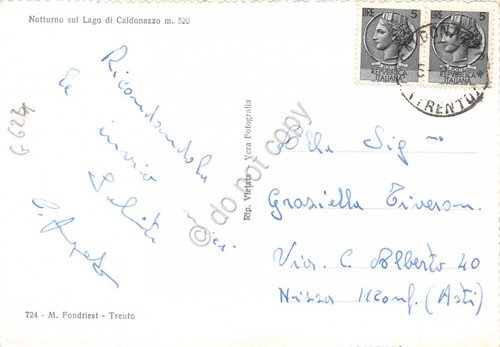 Notturno sul Lago di Caldonazzo m. 520
Ricordandola
Le invio
saluti
G 623
724 - M. Fondriest - Trento
Rip. Vietata - Vera Fotografia
LIRE 5
REPUBBLICA
ITALIANA
LIRE 5
REPUBBLICA
ITALIANA
(TRENTO)
Alla Sig
Graziella
Via C. Alberto 40
Nizza Monf. (Asti)
© do not copy